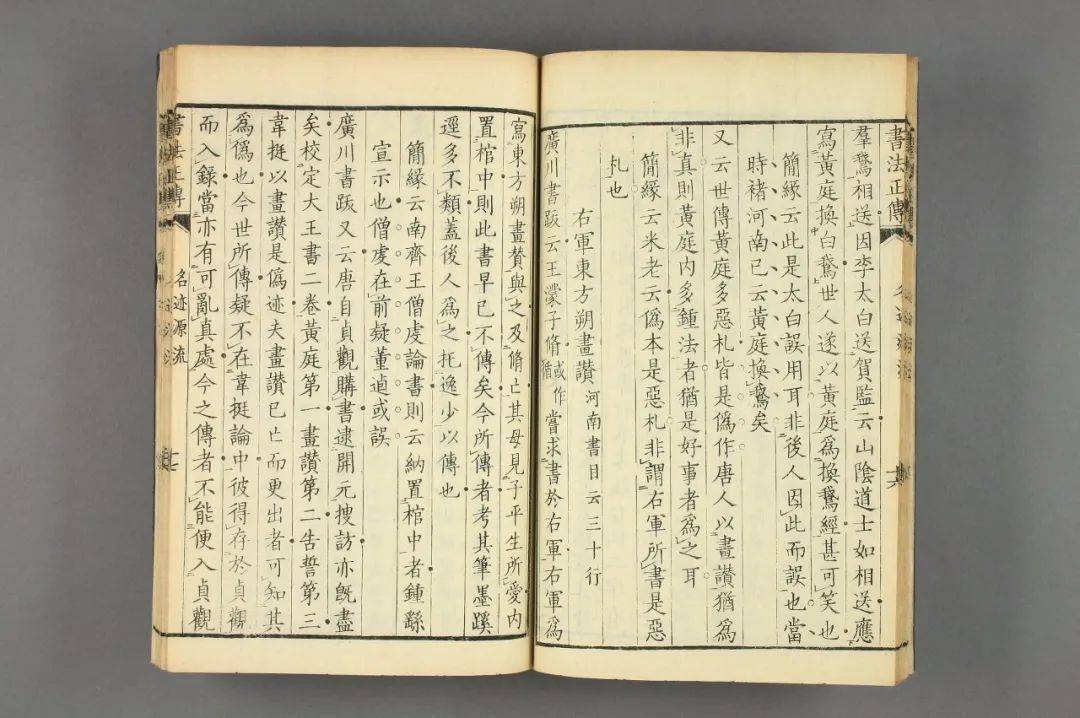 書法正傳
羣鵞相送因李太白送賀監云山陰道士如相送應
寫黃庭換白鵞世人遂以黃庭爲換鵞經甚可笑也
簡緣云此是太白誤用耳非後人因此而誤也當
時褚河南已云黃庭換鵞矣
又云世傳黃庭多惡札皆是偽作唐人以畫讚猶爲
非真則黃庭内多鍾法者猶是好事者爲之耳
簡緣云米老云偽本是惡札非謂右軍所書是惡
札也
右軍東方朔畫讚 河南書目云三十行
廣川書跋云王濛子脩 或作循 嘗求書於右軍右軍爲
寫東方朔畫贊與之及脩亡其母見子平生所愛内
置棺中則此書早已不傳矣今所傳者考其筆墨蹊
逕多不類蓋後人爲之托逸少以傳也
簡緣云南齊王僧虔論書則云納置棺中者鍾繇
宣示也僧虔在前疑董逌或誤
廣川書跋又云唐自貞觀購書逮開元搜訪亦旣盡
矣校定大王書二卷黃庭第一畫讚第二告誓第三
韋挺以畫讚是偽迹夫畫讚已亡而更出者可知其
爲偽也今世所傳疑不在韋挺論中彼得存於貞觀
而入錄當亦有可亂真處今之傳者不能便入貞觀
書法正傳
名迹源流